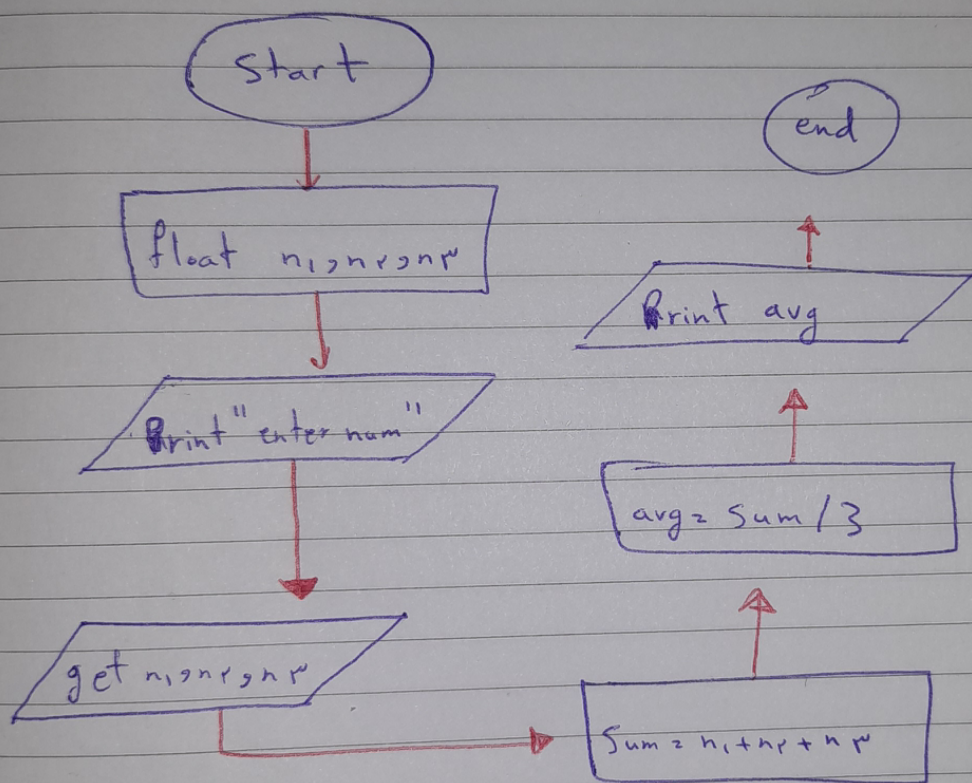 Start
float n۱,n۲,n۳
Print "enter num"
get n۱,n۲,n۳
Sum = n۱+n۲+n۳
avg = Sum / 3
Print avg
end